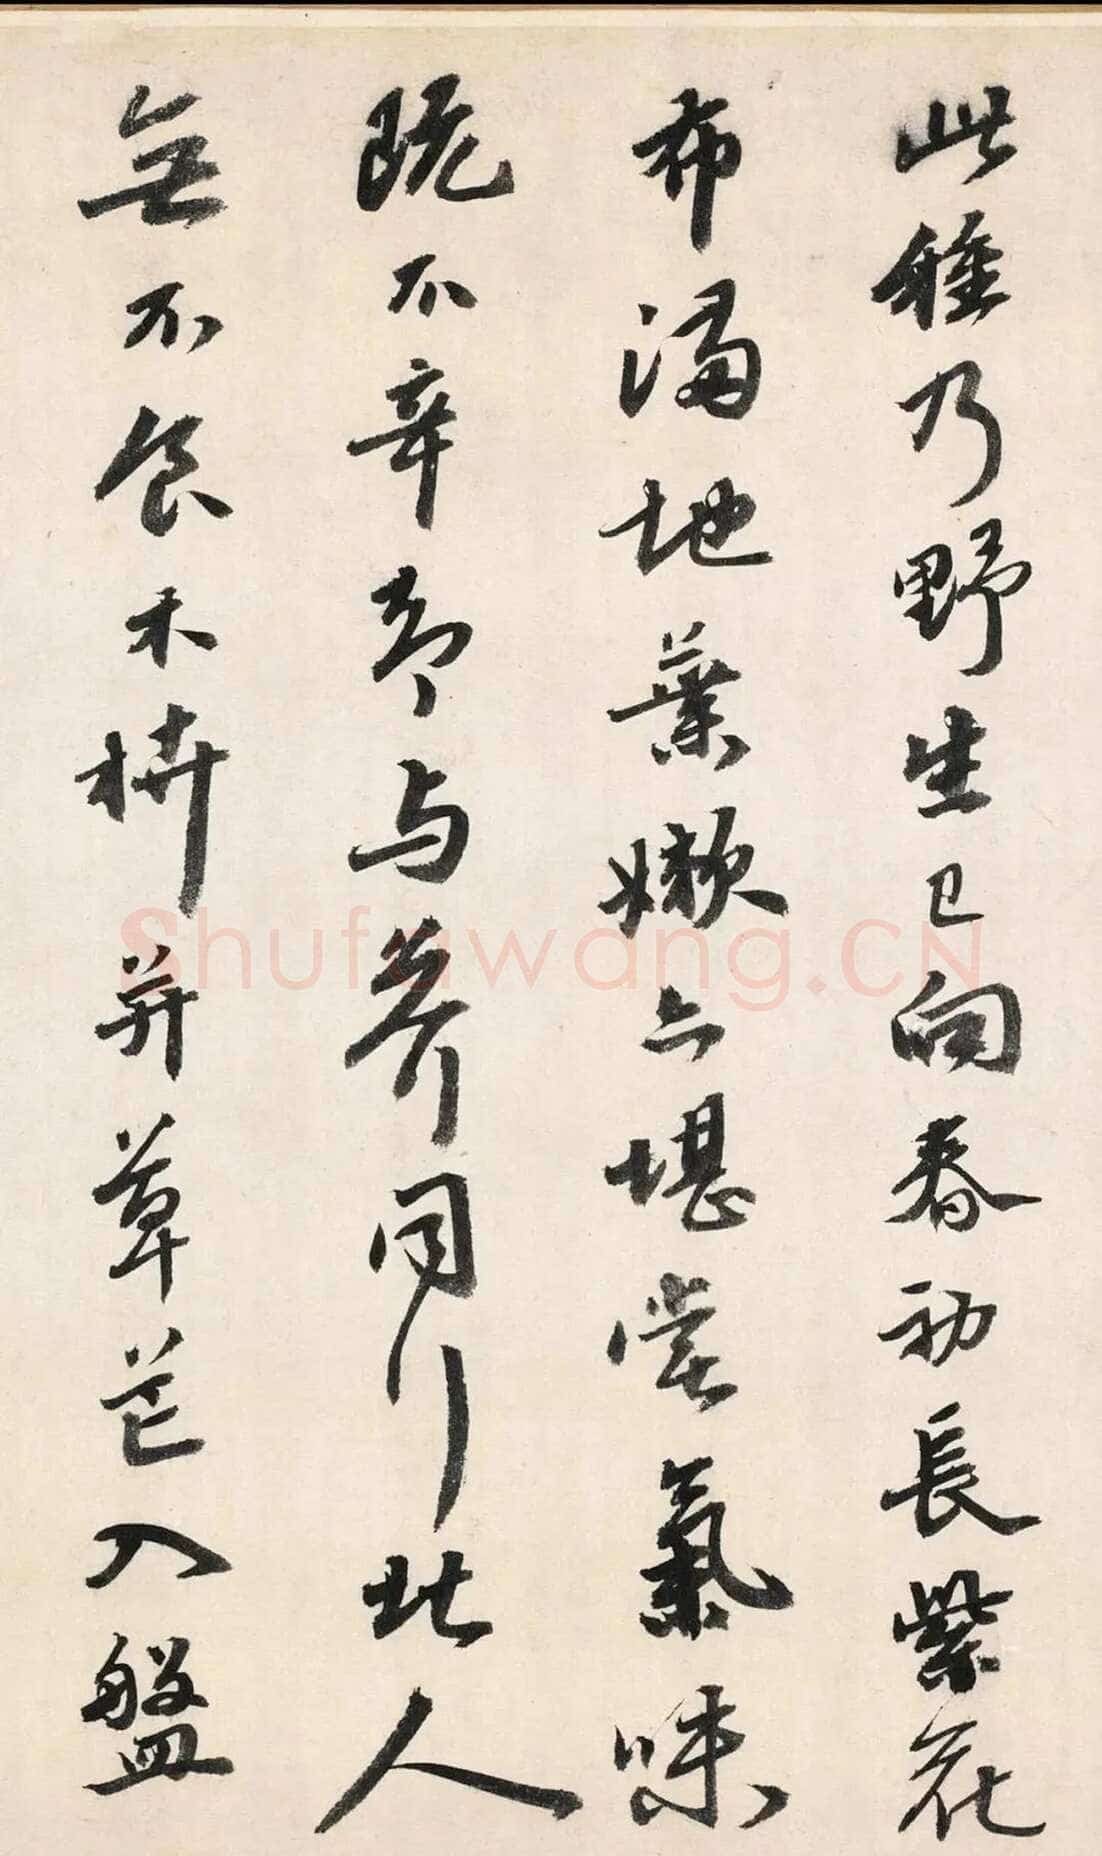 此種乃野生已向春初長紫花
布滿地葉嫩亦堪嘗氣味
既不辛却与芥同行北人
無不食木枿并草芒入盤
Shufawang.CN